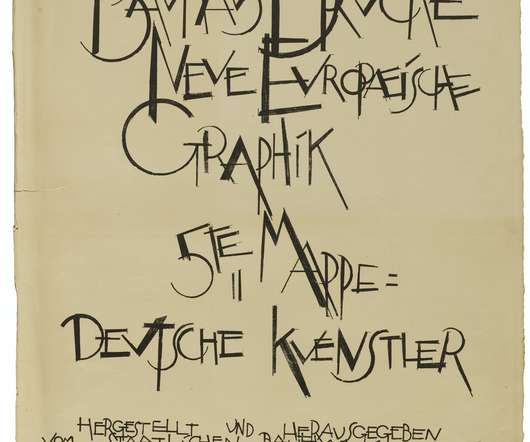 BAUHAUS DRUCKE
NEUE EUROPAEISCHE
GRAPHIK
5TE MAPPE =
DEUTSCHE KUENSTLER
HERGESTELLT UND HERAUSGEGEBEN
VOM STAATLICHEN